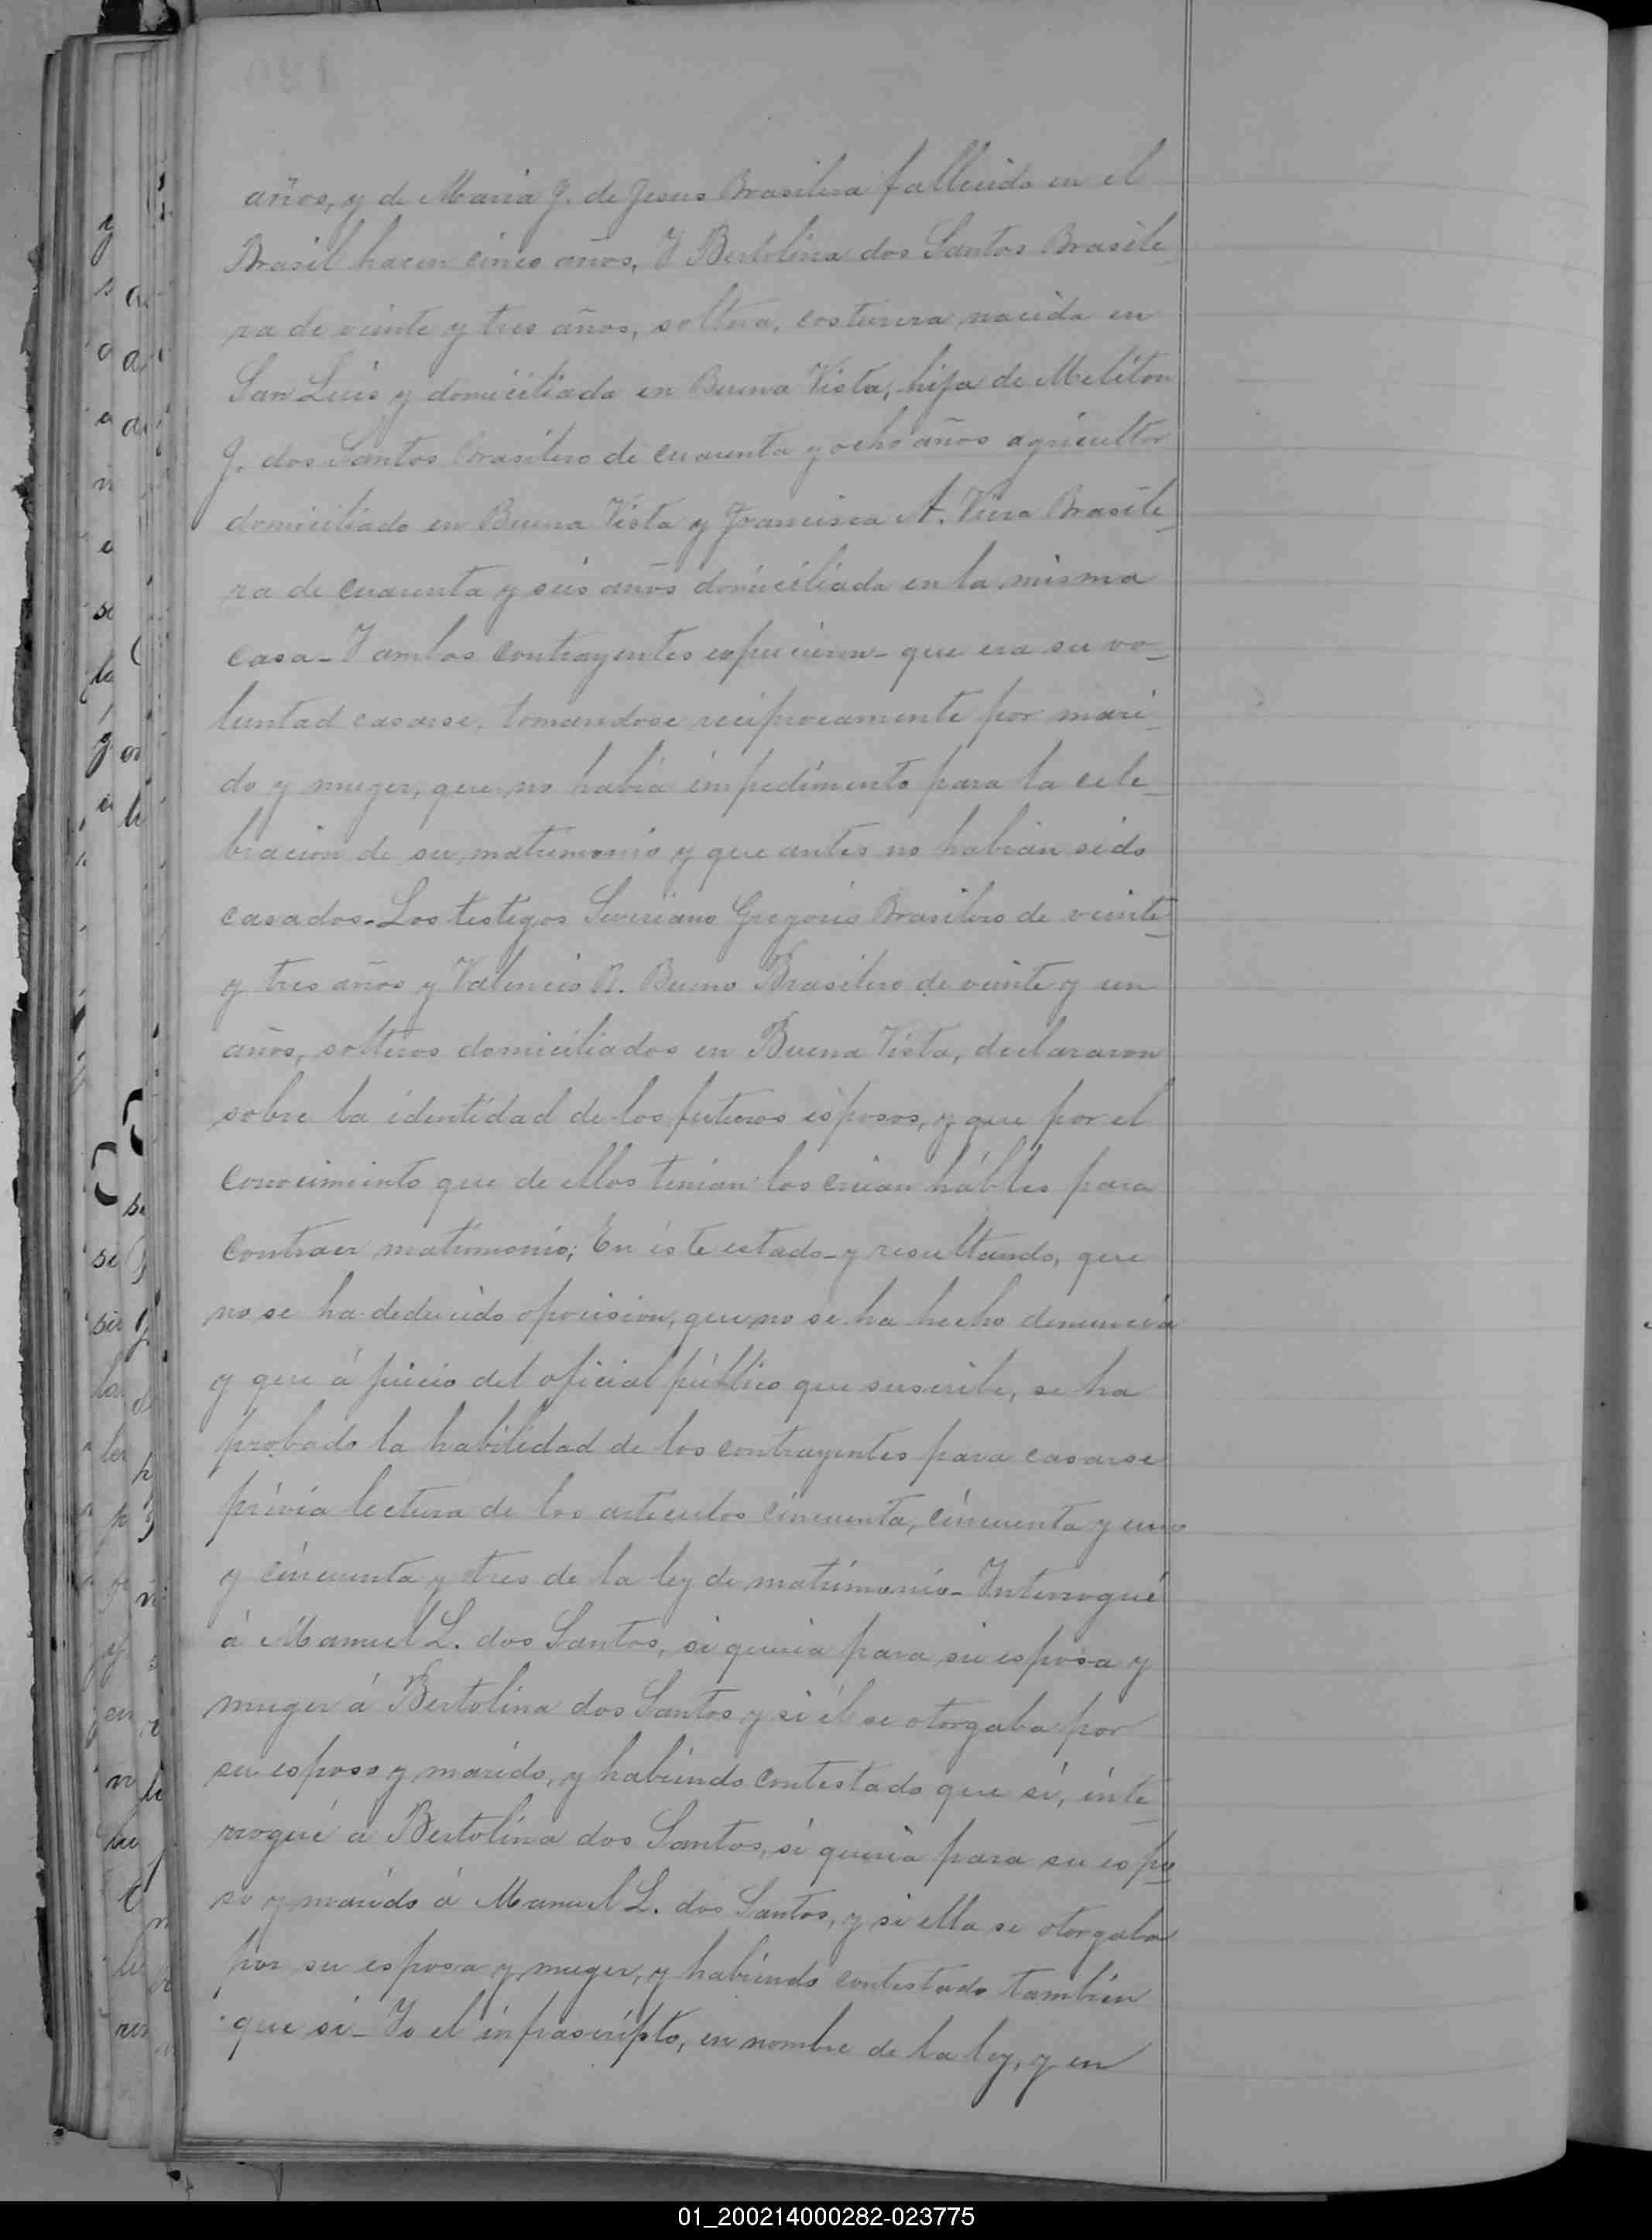 años, y de Maria J. de Jesus Brasilera fallecida en el
Brasil hacen cinco años, Y Bertolina dos Santos Brasile-
ra de veinte y tres años, soltera, costurera nacida en
San Luis y domiciliada en Buena Vista, hija de Meliton
J. dos Santos Brasilero de cuarenta y ocho años agricultor
domiciliado en Buena Vista y Francisca A. Viera Brasile-
ra de cuarenta y seis años domiciliada en la misma
casa- Y ambos contrayentes espucieron- que era su vo-
luntad casarse, tomandose reciprocamente por mari-
do y muger, que no habia impedimento para la cele-
bracion de su matrimonio y que antes no habian sido
casados- Los testigos Severiano Gregorio Brasilero de veinte
y tres años y Valencio R. Bueno Brasilero de veinte y un
años, solteros domiciliados en Buena Vista, declararon
sobre la identidad de los futuros esposos, y que por el
conocimiento que de ellos tenian los creian hábles para
contraer matrimonio; En éste estado- y resultando, que
no se ha deducido opocision, que no se ha hecho denuncia
y que á juicio del oficial público que suscribe, se ha
probado la habilidad de los contrayentes para casarse
prévia lectura de los articulos cincuenta, cincuenta y uno
y cincuenta y tres de la ley de matrimonio- Interrogué
á Manuel L. dos Santos, si queria para su esposa y
muger á Bertolina dos Santos y si él se otorgaba por
su esposo y marido, y habiendo contestado que si, inte-
rrogué á Bertolina dos Santos, si queria para su espo-
so y marido á Manuel L. dos Santos, y si ella se otorgaba
por su esposa y muger, y habiendo contestado tambien
que si- Yo el infrascripto, en nombre de la ley, y en
01_200214000282-023775